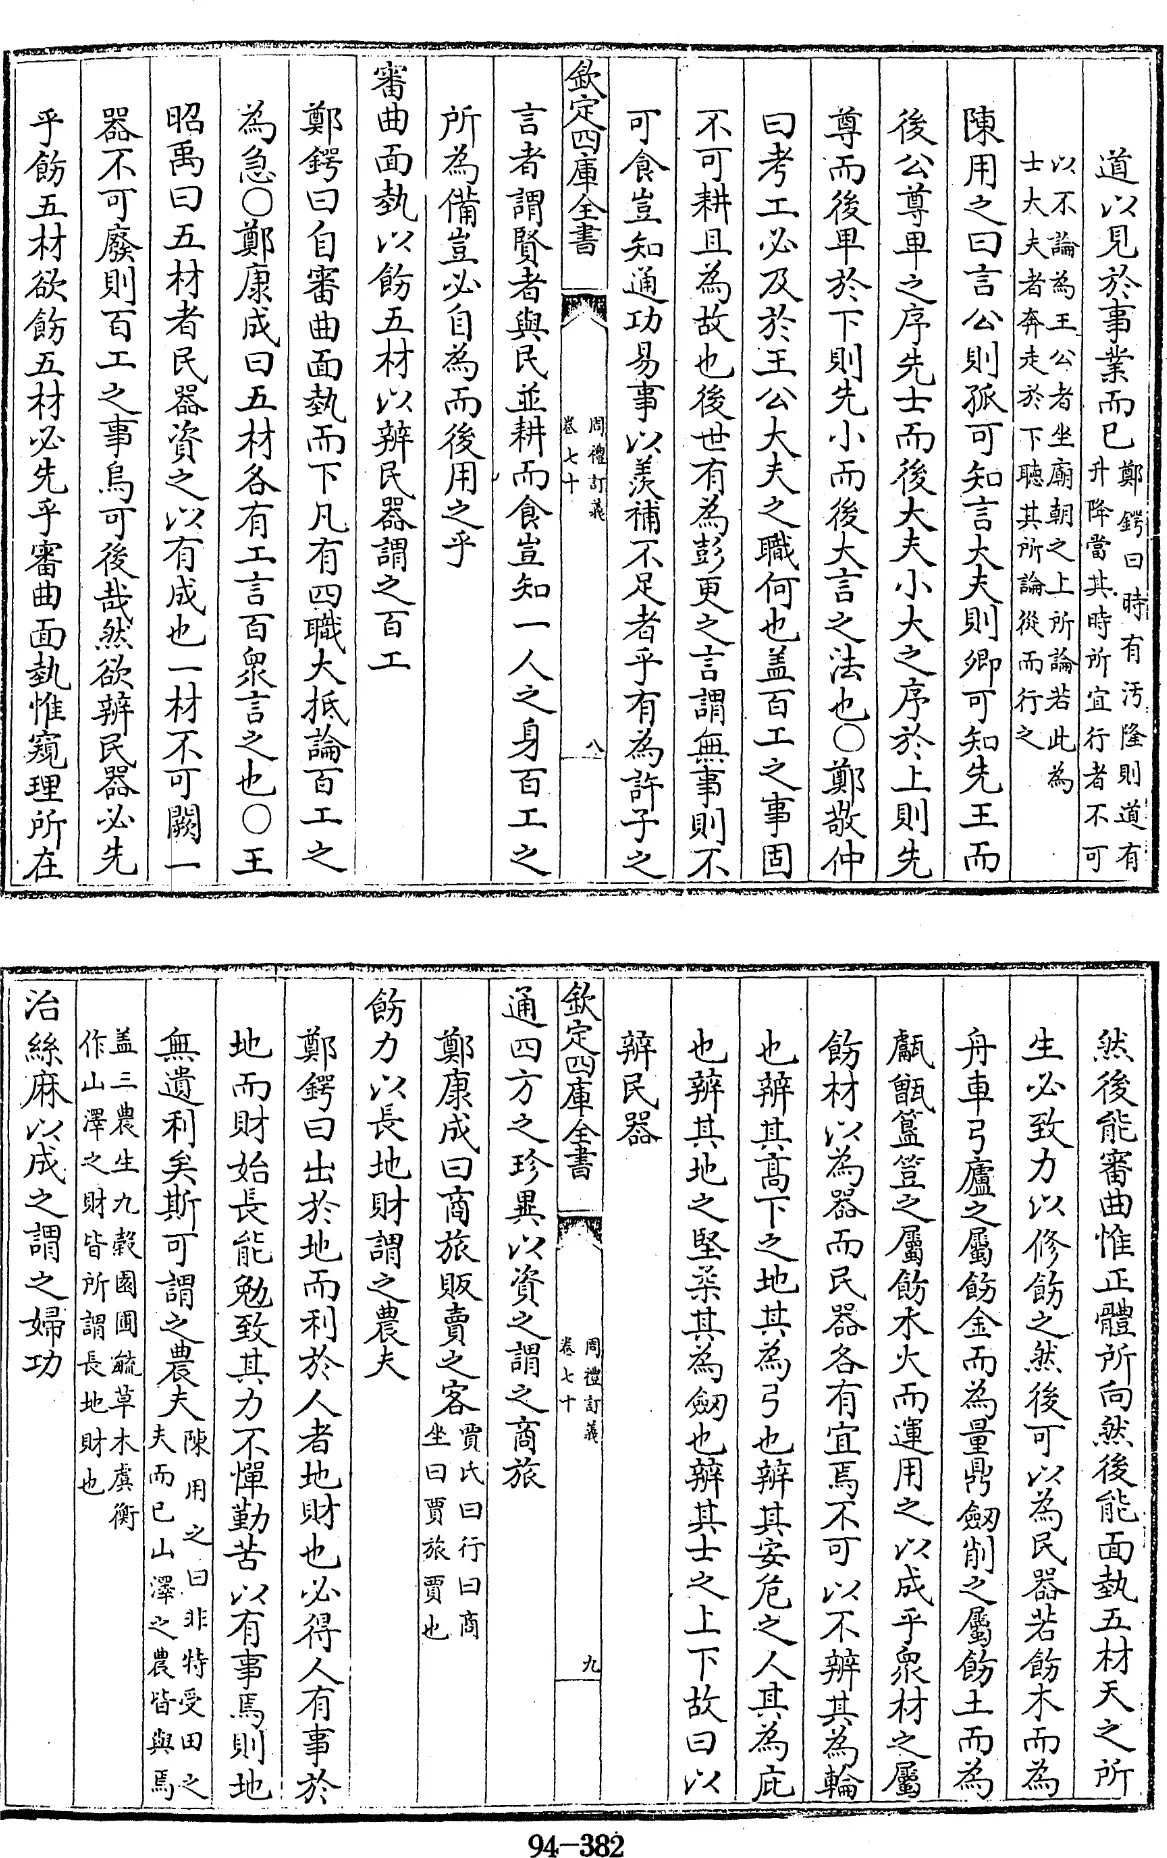 道以見於事業而已鄭鍔曰時有汚隆則道有升降當其時所宜行者不可
以不論為王公者坐廟朝之上所論若此為士大夫者奔走於下聽其所論從而行之
陳用之曰言公則孤可知言大夫則卿可知先王而
後公尊卑之序先士而後大夫小大之序於上則先
尊而後卑於下則先小而後大言之法也○鄭敬仲
曰考工必及於王公大夫之職何也盖百工之事固
不可耕且為故也後世有為彭更之言謂無事則不
可食豈知通功易事以羨補不足者乎有為許子之
欽定四庫全書
周禮訂義
卷七十
八
言者謂賢者與民並耕而食豈知一人之身百工之
所為備豈必自為而後用之乎
審曲面埶以飭五材以辨民器謂之百工
鄭鍔曰自審曲面埶而下凡有四職大抵論百工之
為急○鄭康成曰五材各有工言百衆言之也○王
昭禹曰五材者民器資之以有成也一材不可闕一
器不可廢則百工之事烏可後哉然欲辨民器必先
乎飭五材欲飭五材必先乎審曲面埶惟窺理所在
然後能審曲惟正體所向然後能面埶五材天之所
生必致力以修飭之然後可以為民器若飭木而為
舟車弓廬之屬飭金而為量鼎劒削之屬飭土而為
甗甑簋豆之屬飭水火而運用之以成乎衆材之屬
飭材以為器而民器各有宜焉不可以不辨其為輪
也辨其高下之地其為弓也辨其安危之人其為庇
也辨其地之堅柔其為劒也辨其士之上下故曰以
辨民器
欽定四庫全書
周禮訂義
卷七十
九
通四方之珍異以資之謂之商旅
鄭康成曰商旅販賣之客賈氏曰行曰商坐曰賈旅賈也
飭力以長地財謂之農夫
鄭鍔曰出於地而利於人者地財也必得人有事於
地而財始長能勉致其力不憚勤苦以有事焉則地
無遺利矣斯可謂之農夫陳用之曰非特受田之夫而已山澤之農皆與焉
盖三農生九穀園圃毓草木虞衡作山澤之財皆所謂長地財也
治絲麻以成之謂之婦功
94-382